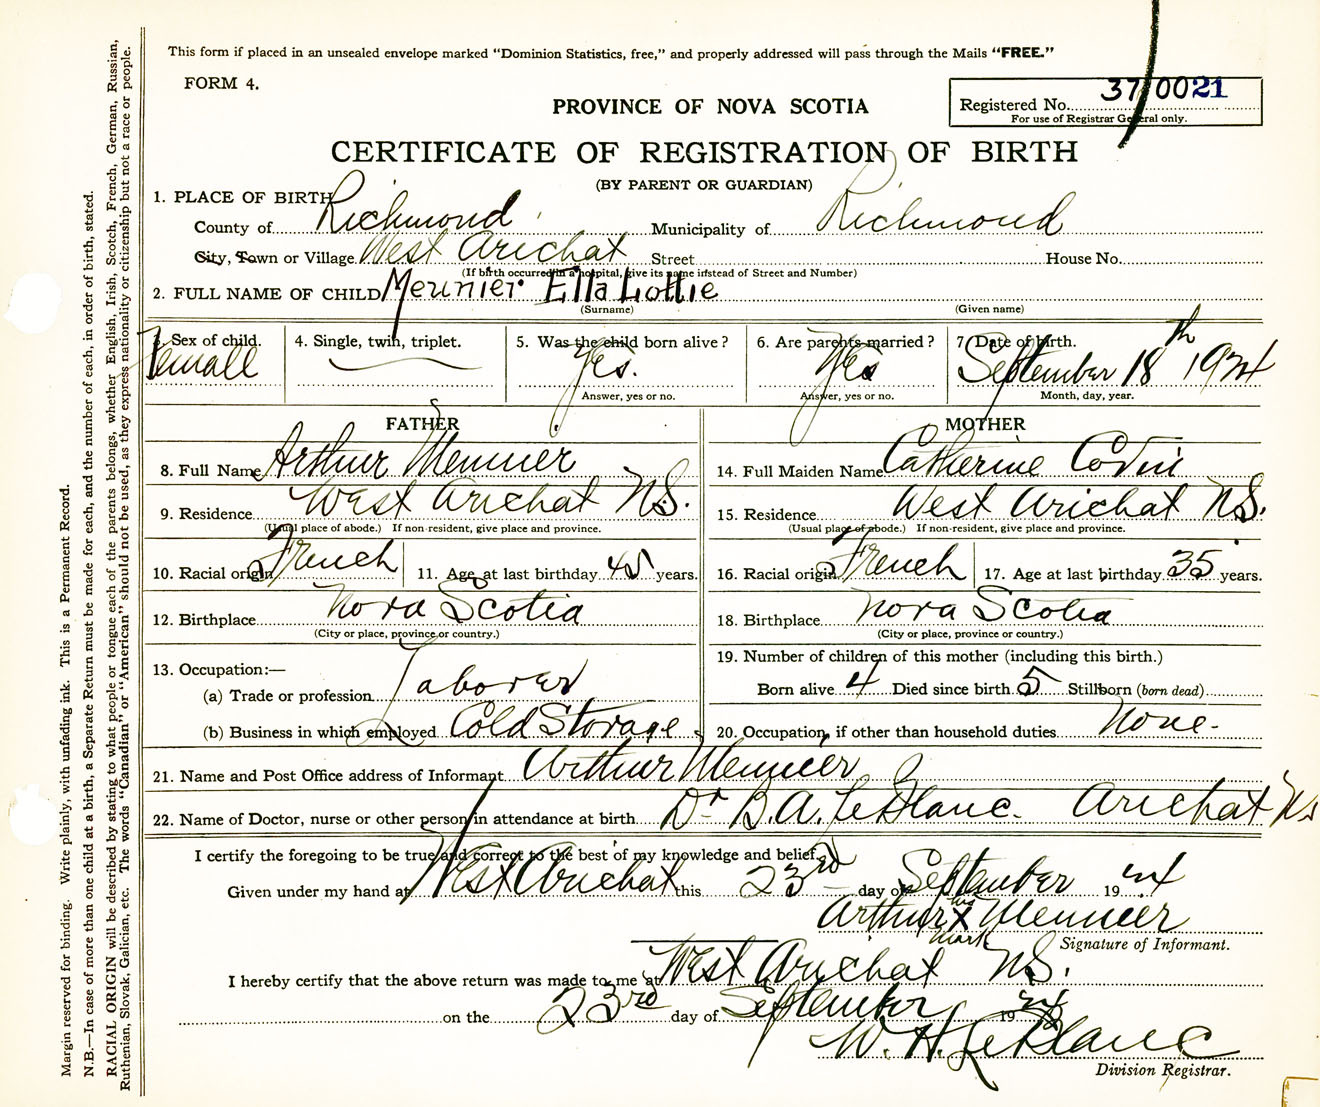 This form if placed in an unsealed envelope marked "Dominion Statistics, free," and properly addressed will pass through the Mails "FREE."
FORM 4.
PROVINCE OF NOVA SCOTIA
Registered No. 37 0021
For use of Registrar General only.
CERTIFICATE OF REGISTRATION OF BIRTH
(BY PARENT OR GUARDIAN)
1. PLACE OF BIRTH
County of Richmond Municipality of Richmond
City, Town or Village West Arichat Street House No.
(If birth occurred in a hospital, give its name instead of Street and Number)
2. FULL NAME OF CHILD Meunier Ella Lottie
(Surname) (Given name)
3. Sex of child. 4. Single, twin, triplet. 5. Was the child born alive? 6. Are parents married? 7. Date of birth.
Femall Yes. Yes September 18th 1924
Answer, yes or no. Answer, yes or no. Month, day, year.
FATHER MOTHER
8. Full Name Arthur Meunier 14. Full Maiden Name Catherine
9. Residence West Arichat N.S. 15. Residence West Arichat N.S.
(Usual place of abode.) If non-resident, give place and province. (Usual place of abode.) If non-resident, give place and province.
10. Racial origin French 11. Age at last birthday 45 years. 16. Racial origin French 17. Age at last birthday 35 years.
12. Birthplace Nova Scotia 18. Birthplace Nova Scotia
(City or place, province or country.) (City or place, province or country.)
13. Occupation:— 19. Number of children of this mother (including this birth.)
(a) Trade or profession Laborer Born alive 4 Died since birth 5 Stillborn (born dead)
(b) Business in which employed Cold Storage 20. Occupation, if other than household duties None-
21. Name and Post Office address of Informant Arthur Meunier
22. Name of Doctor, nurse or other person in attendance at birth Dr B.A. LeBlanc. Arichat NS
I certify the foregoing to be true and correct to the best of my knowledge and belief
Given under my hand at West Arichat this 23rd day of September 1924
Arthur his X mark Meunier
Signature of Informant.
I hereby certify that the above return was made to me at West Arichat N.S.
on the 23rd day of September 1924
W. H. LeBlanc
Division Registrar.
Margin reserved for binding. Write plainly, with unfading ink. This is a Permanent Record.
N.B.—In case of more than one child at a birth, a Separate Return must be made for each, and the number of each, in order of birth, stated.
RACIAL ORIGIN will be described by stating to what people or tongue each of the parents belongs, whether English, Irish, Scotch, French, German, Russian,
Ruthenian, Slovak, Galician, etc. The words "Canadian" or "American" should not be used, as they express nationality or citizenship but not a race or people.